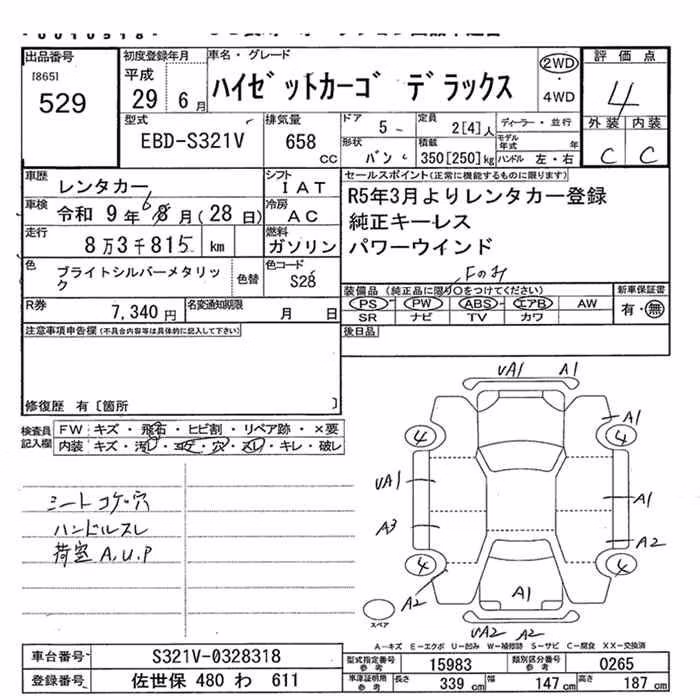 出品番号
[865]
529
初度登録年月
平成
29 6月
車名・グレード
ハイゼットカーゴ デラックス
2WD
・
4WD
評価点
4
外装 内装
C C
型式
EBD-S321V
排気量
658
CC
ドア
5
定員
2[4]人
形状
バン
積載
350[250]kg
ディーラー・並行
モデル年式 年
ハンドル 左・右
車歴
レンタカー
シフト
IAT
車検
令和 9年 6 8月(28日)
冷房
AC
走行
8万3千815 km
燃料
ガソリン
色
ブライトシルバーメタリック
色替
色コード
S28
R券
7,340円
名変通知期限
月 日
セールスポイント(正常に機能するものに限ります)
R5年3月よりレンタカー登録
純正キーレス
パワーウインド
Fのみ
装備品(純正品に限り○をつけてください)
PS PW ABS エアB AW
SR ナビ TV カワ
新車保証書
有・無
後日品
注意事項申告欄(不具合内容等は具体的に記入して下さい)
修復歴 有〔箇所 〕
検査員記入欄
FW キズ・飛石・ヒビ割・リペア跡・×要
内装 キズ・汚レ・コゲ・穴・スレ・キレ・破レ
シートコゲ・穴
ハンドルスレ
荷室A,U,P
UA1 A1
A1
4 4
UA1
A1
A3
A2
4 4
A2
A1
UA2 A2
スペア
A-キズ E-エクボ U-凹み W-補修跡 S-サビ C-腐食 XX-交換済
車台番号 S321V-0328318
登録番号 佐世保 480 わ 611
型式指定番号参考 15983 類別区分番号参考 0265
車庫証明用参考 長さ 339cm 幅 147cm 高さ 187cm